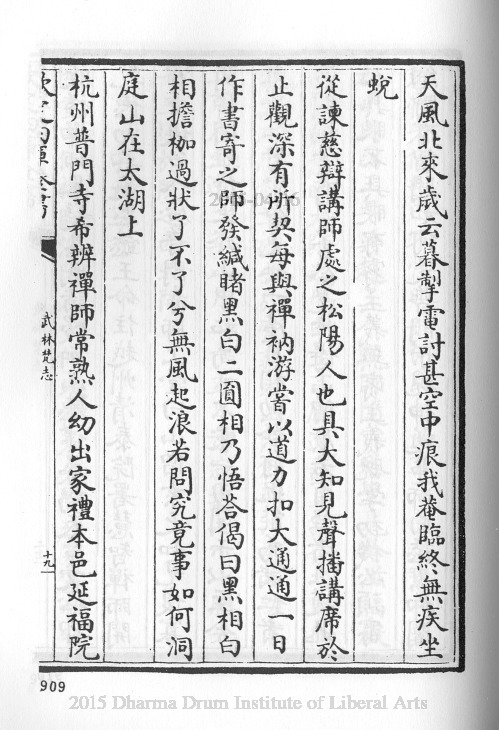 天風北來歲云暮掣電討甚空中痕我菴臨終無疾坐
蛻
從諫慈辯講師處之松陽人也具大知見聲播講席於
止觀深有所契每與禪衲游嘗以道力扣大通通一日
作書寄之師發緘睹黑白二圓相乃悟荅偈曰黑相白
相擔枷過狀了不了兮無風起浪若問究竟事如何洞
庭山在太湖上
杭州普門寺希辨禪師常熟人幼出家禮本邑延福院
武林梵志
十九
909
2015 Dharma Drum Institute of Liberal Arts